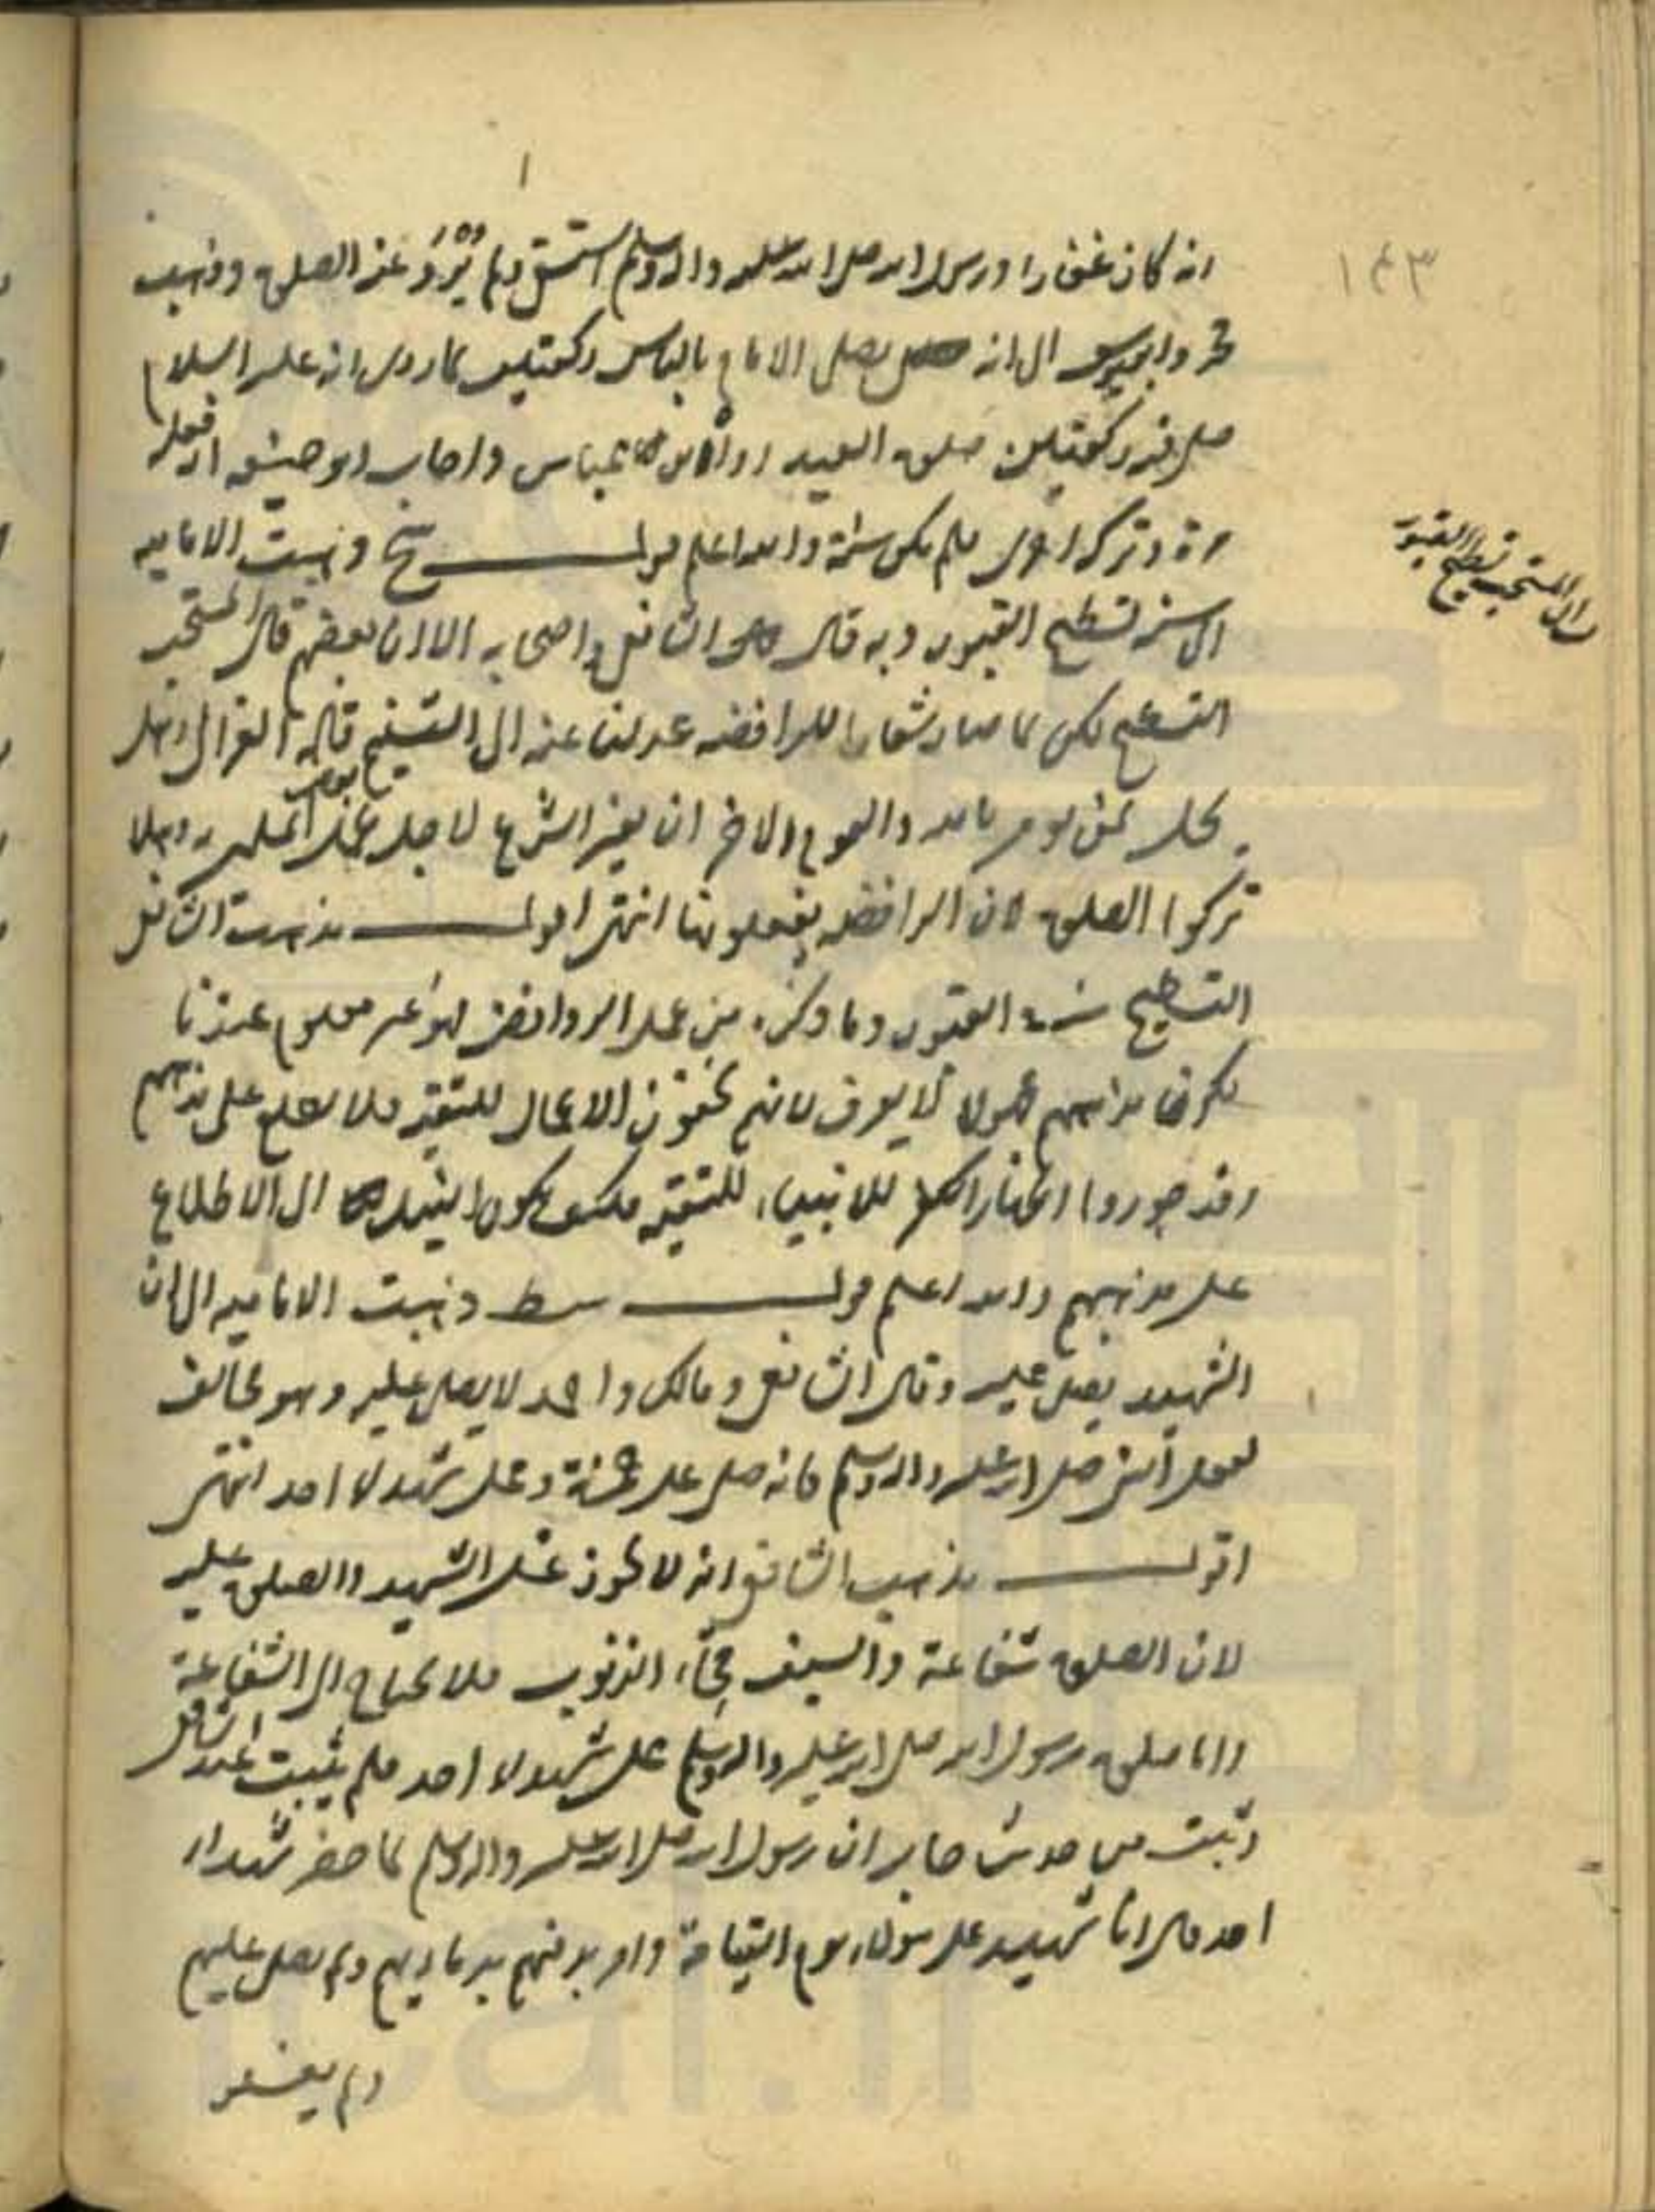 ١٤٣
انه كان غفارا ورسول الله صلى الله عليه واله وسلم استسقى ولم يُرْوَ عنه الصلوة وذهب
محمد وابويوسف الى انه يصلى الامام بالناس ركعتين لما روى انه عليه السلام
صلى فيه ركعتين صلوة العيد رواه ابن عباس واجاب ابو حنيفة انه فعله
مرة وتركه اخرى فلم يكن سنة والله اعلم قوله ذهبت الاماميه
الى سنة تسطيح القبور وبه قال الشافعي واصحابه الا ان بعضهم قال المستحب
التسطيح لكن لما صار شعارا للرافضه عدلنا عنه الى التسنيم قاله الغزالي وهل
يحل لمن يومن بالله واليوم الاخر ان يغير الشرع لاجل عمل بعض المسلمين به وهلا
تركوا الصلوة لان الرافضه يفعلونها انتهى اقول مذهب الشافعي
التسطيح في القبور وما ذكره من عمل الروافض فهو غير معلوم عندنا
لكون مذاهبهم مجهولا لا يعرف لانهم يخفون الاعمال للتقية فلا يطلع على مذهبهم
وقد جوزوا اظهار الكفر للانبياء للتقية فكيف يكون السبيل الى الاطلاع
على مذهبهم والله اعلم قوله ذهبت الاماميه الى ان
الشهيد يصلى عليه وقال الشافعي ومالك واحمد لا يصلى عليه وهو مخالف
لفعل النبي صلى الله عليه واله وسلم فانه صلى على حمزة وعلى شهداء احد انتهى
اقول مذهب الشافعي انه لا يجوز غسل الشهيد والصلوة عليه
لان الصلوة شفاعة والسيف محّاء الذنوب فلا يحتاج الى الشفاعة
واما صلوة رسول الله صلى الله عليه واله وسلم على شهداء احد فلم يثبت عند الشافعي
وثبت من حديث جابر ان رسول الله صلى الله عليه واله وسلم لما حضر شهداء
احد قال انا شهيد على هؤلاء يوم القيامة وامر بدفنهم بدمائهم ولم يصل عليهم
ولم يغسلو
ان المستحب تسطيح القبور